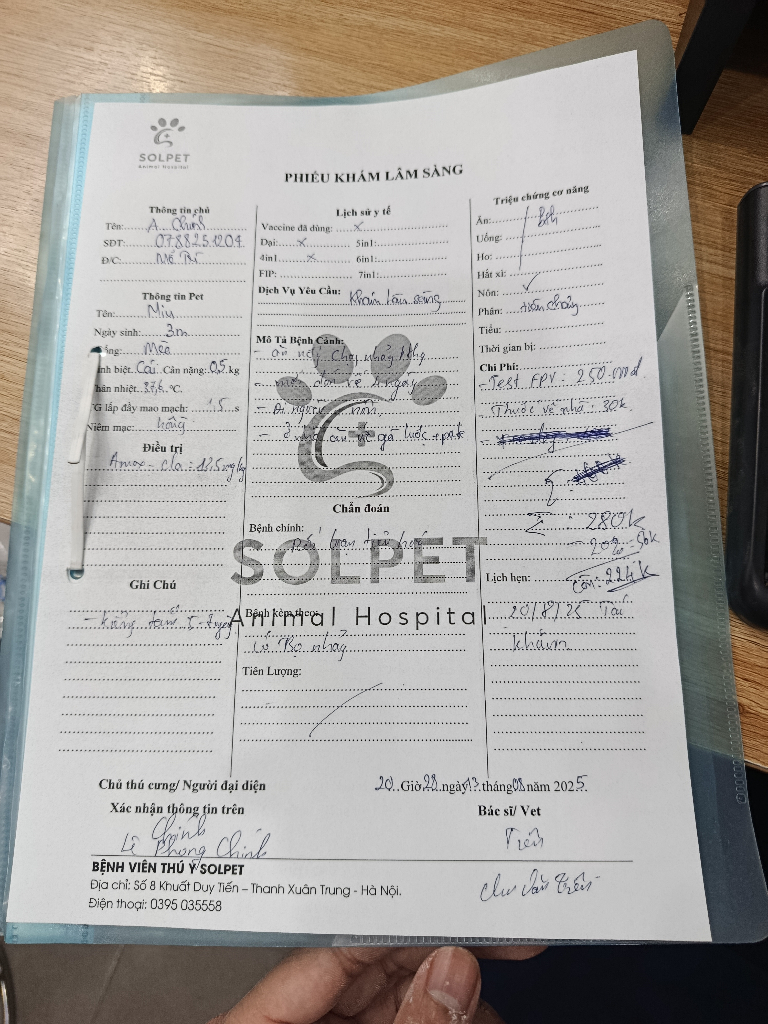 SOLPET
Animal Hospital
PHIẾU KHÁM LÂM SÀNG
Thông tin chủ
Tên: A. Chính
SĐT: 0788251204
Đ/C: Mễ Trì
Thông tin Pet
Tên: Miu
Ngày sinh: 3m
ống: Mèo
inh biệt: Cái Cân nặng: 0,5 kg
hân nhiệt: 37,6 °C
G lấp đầy mao mạch: 1,5 s
Niêm mạc: hồng
Điều trị
Amox - cla: 12,5mg/kg
Ghi Chú
- Kiêng tắm 5-7 ngày
Lịch sử y tế
Vaccine đã dùng: x
Dại: x 5in1:
4in1: x 6in1:
FIP: 7in1:
Dịch Vụ Yêu Cầu: Khám lâm sàng
Mô Tả Bệnh Cảnh:
- ăn ngủ, chạy nhảy
- mới đón về 2 ngày
- nôn
- ăn gà luộc + pate
Chẩn đoán
Bệnh chính:
Rối loạn tiêu hoá
SOLPET
Animal Hospital
Bệnh kèm theo:
Có Bọ nhảy
Tiên Lượng:
Triệu chứng cơ năng
Ăn:
Uống: bth
Ho:
Hắt xì:
Nôn: ✓
Phân:
Tiểu:
Thời gian bị:
Chi Phí:
- Test FPV: 250.000đ
- Thuốc về nhà: 30k
Σ
Σ: 280k
- 20% - 56k
Còn: 224k
Lịch hẹn:
20/8/25 Tái
khám
Chủ thú cưng/ Người đại diện
Xác nhận thông tin trên
Chính
Lê Phong Chính
20 Giờ 28 ngày 13 tháng 08 năm 2025.
Bác sĩ/ Vet
Tiến
Chu Văn Tiến
BỆNH VIÊN THÚ Y SOLPET
Địa chỉ: Số 8 Khuất Duy Tiến – Thanh Xuân Trung - Hà Nội.
Điện thoại: 0395 035558